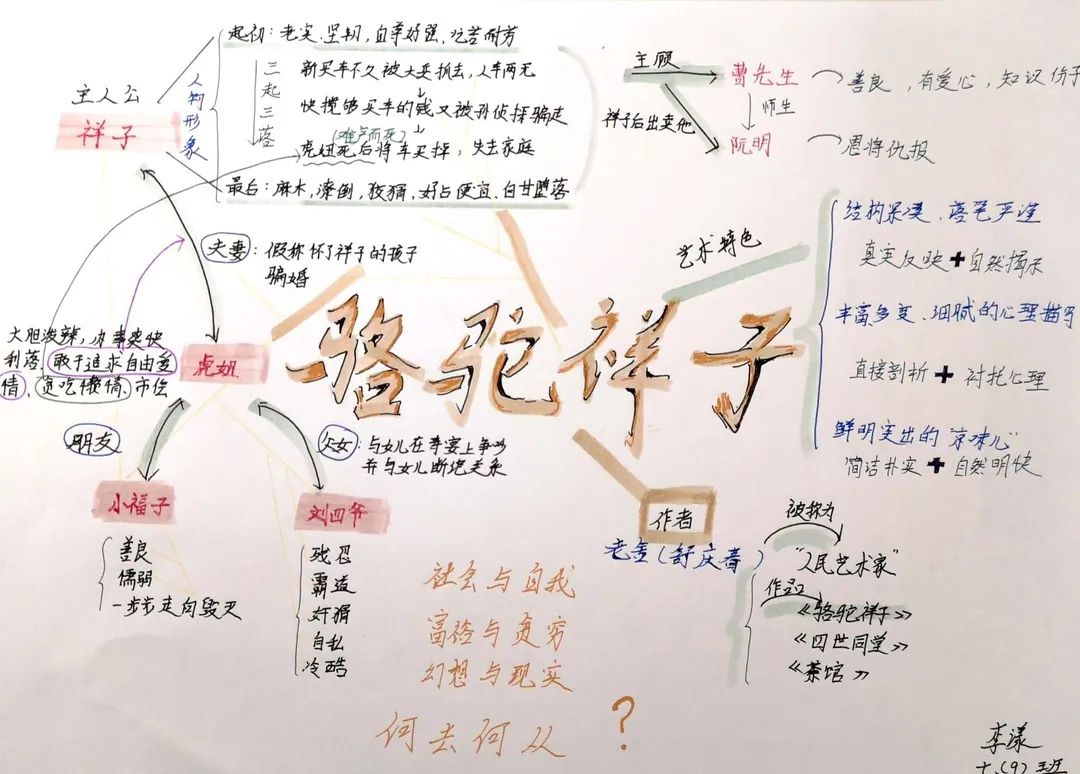 主人公
祥子
人物形象
起初：老实、坚韧，自尊好强、吃苦耐劳
三起三落
新买车不久被大兵抓去，人车两无
快攒够买车的钱又被孙侦探骗走
(难产而死)
虎妞死后将车卖掉，失去家庭
最后：麻木，潦倒，狡猾，好占便宜，自甘堕落
主顾
曹先生
善良，有爱心，知识份子
师生
祥子后出卖他
阮明
恩将仇报
夫妻：假称怀了祥子的孩子
骗婚
大胆泼辣，办事爽快
利落，敢于追求自由爱
情，贪吃懒惰，市侩
虎妞
朋友
小福子
善良
懦弱
一步步走向毁灭
父女：与女儿在寿宴上争吵
并与女儿断绝关系
刘四爷
残忍
霸道
奸猾
自私
冷酷
骆驼祥子
艺术特色
结构紧凑、落笔严谨
真实反映+自然揭示
丰富多变、细腻的心理描写
直接剖析+衬托心理
鲜明突出的“京味儿”
简洁朴实+自然明快
作者
老舍(舒庆春)
被称为
“人民艺术家”
作品
《骆驼祥子》
《四世同堂》
《茶馆》
社会与自我
富裕与贫穷
幻想与现实
何去何从？
李漾
七.(9)班